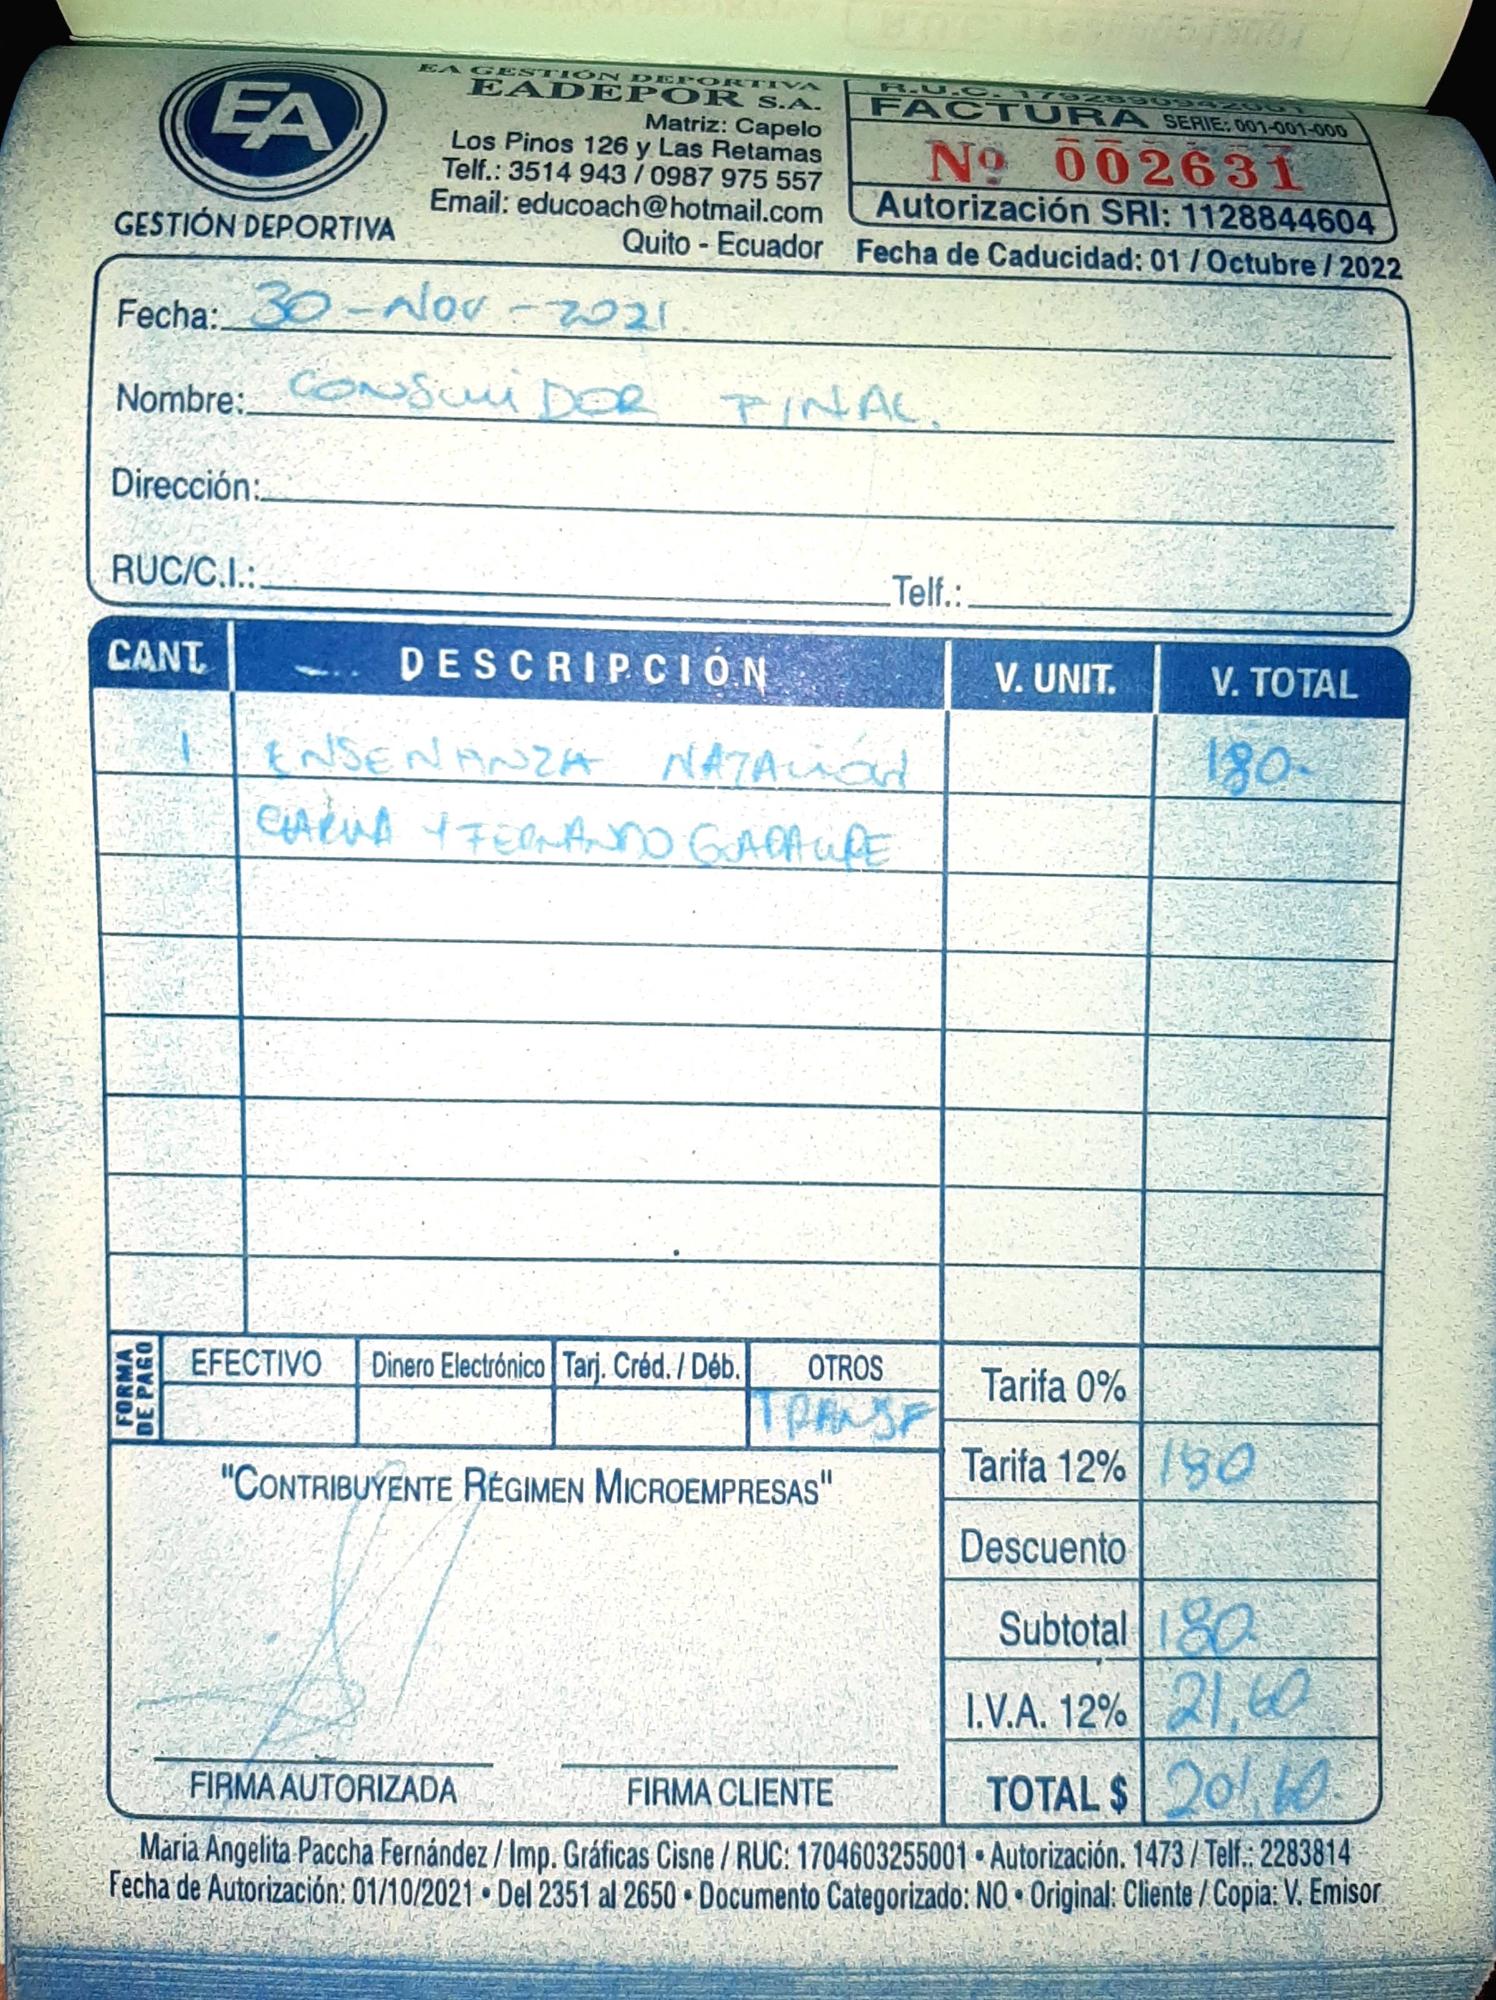 EA
GESTIÓN DEPORTIVA
EA GESTIÓN DEPORTIVA
EADEPOR S.A.
Matriz: Capelo
Los Pinos 126 y Las Retamas
Telf.: 3514 943 / 0987 975 557
Email: educoach@hotmail.com
Quito - Ecuador
R.U.C. 1792890942001
FACTURA SERIE: 001-001-000
Nº 002631
Autorización SRI: 1128844604
Fecha de Caducidad: 01 / Octubre / 2022
Fecha: 30-Nov-2021
Nombre: CONSUMIDOR FINAL.
Dirección:
RUC/C.I.: Telf.:
CANT. DESCRIPCIÓN V. UNIT. V. TOTAL
1 ENSENANZA NATACIÓN 180.-
Y FERNANDO
FORMA DE PAGO
EFECTIVO Dinero Electrónico Tarj. Créd. / Déb. OTROS
TRANSF
Tarifa 0%
Tarifa 12% 180
Descuento
Subtotal 180
I.V.A. 12% 21,60
TOTAL $ 201,60
"CONTRIBUYENTE RÉGIMEN MICROEMPRESAS"
FIRMA AUTORIZADA FIRMA CLIENTE
María Angelita Paccha Fernández / Imp. Gráficas Cisne / RUC: 1704603255001 • Autorización. 1473 / Telf.: 2283814
Fecha de Autorización: 01/10/2021 • Del 2351 al 2650 • Documento Categorizado: NO • Original: Cliente / Copia: V. Emisor